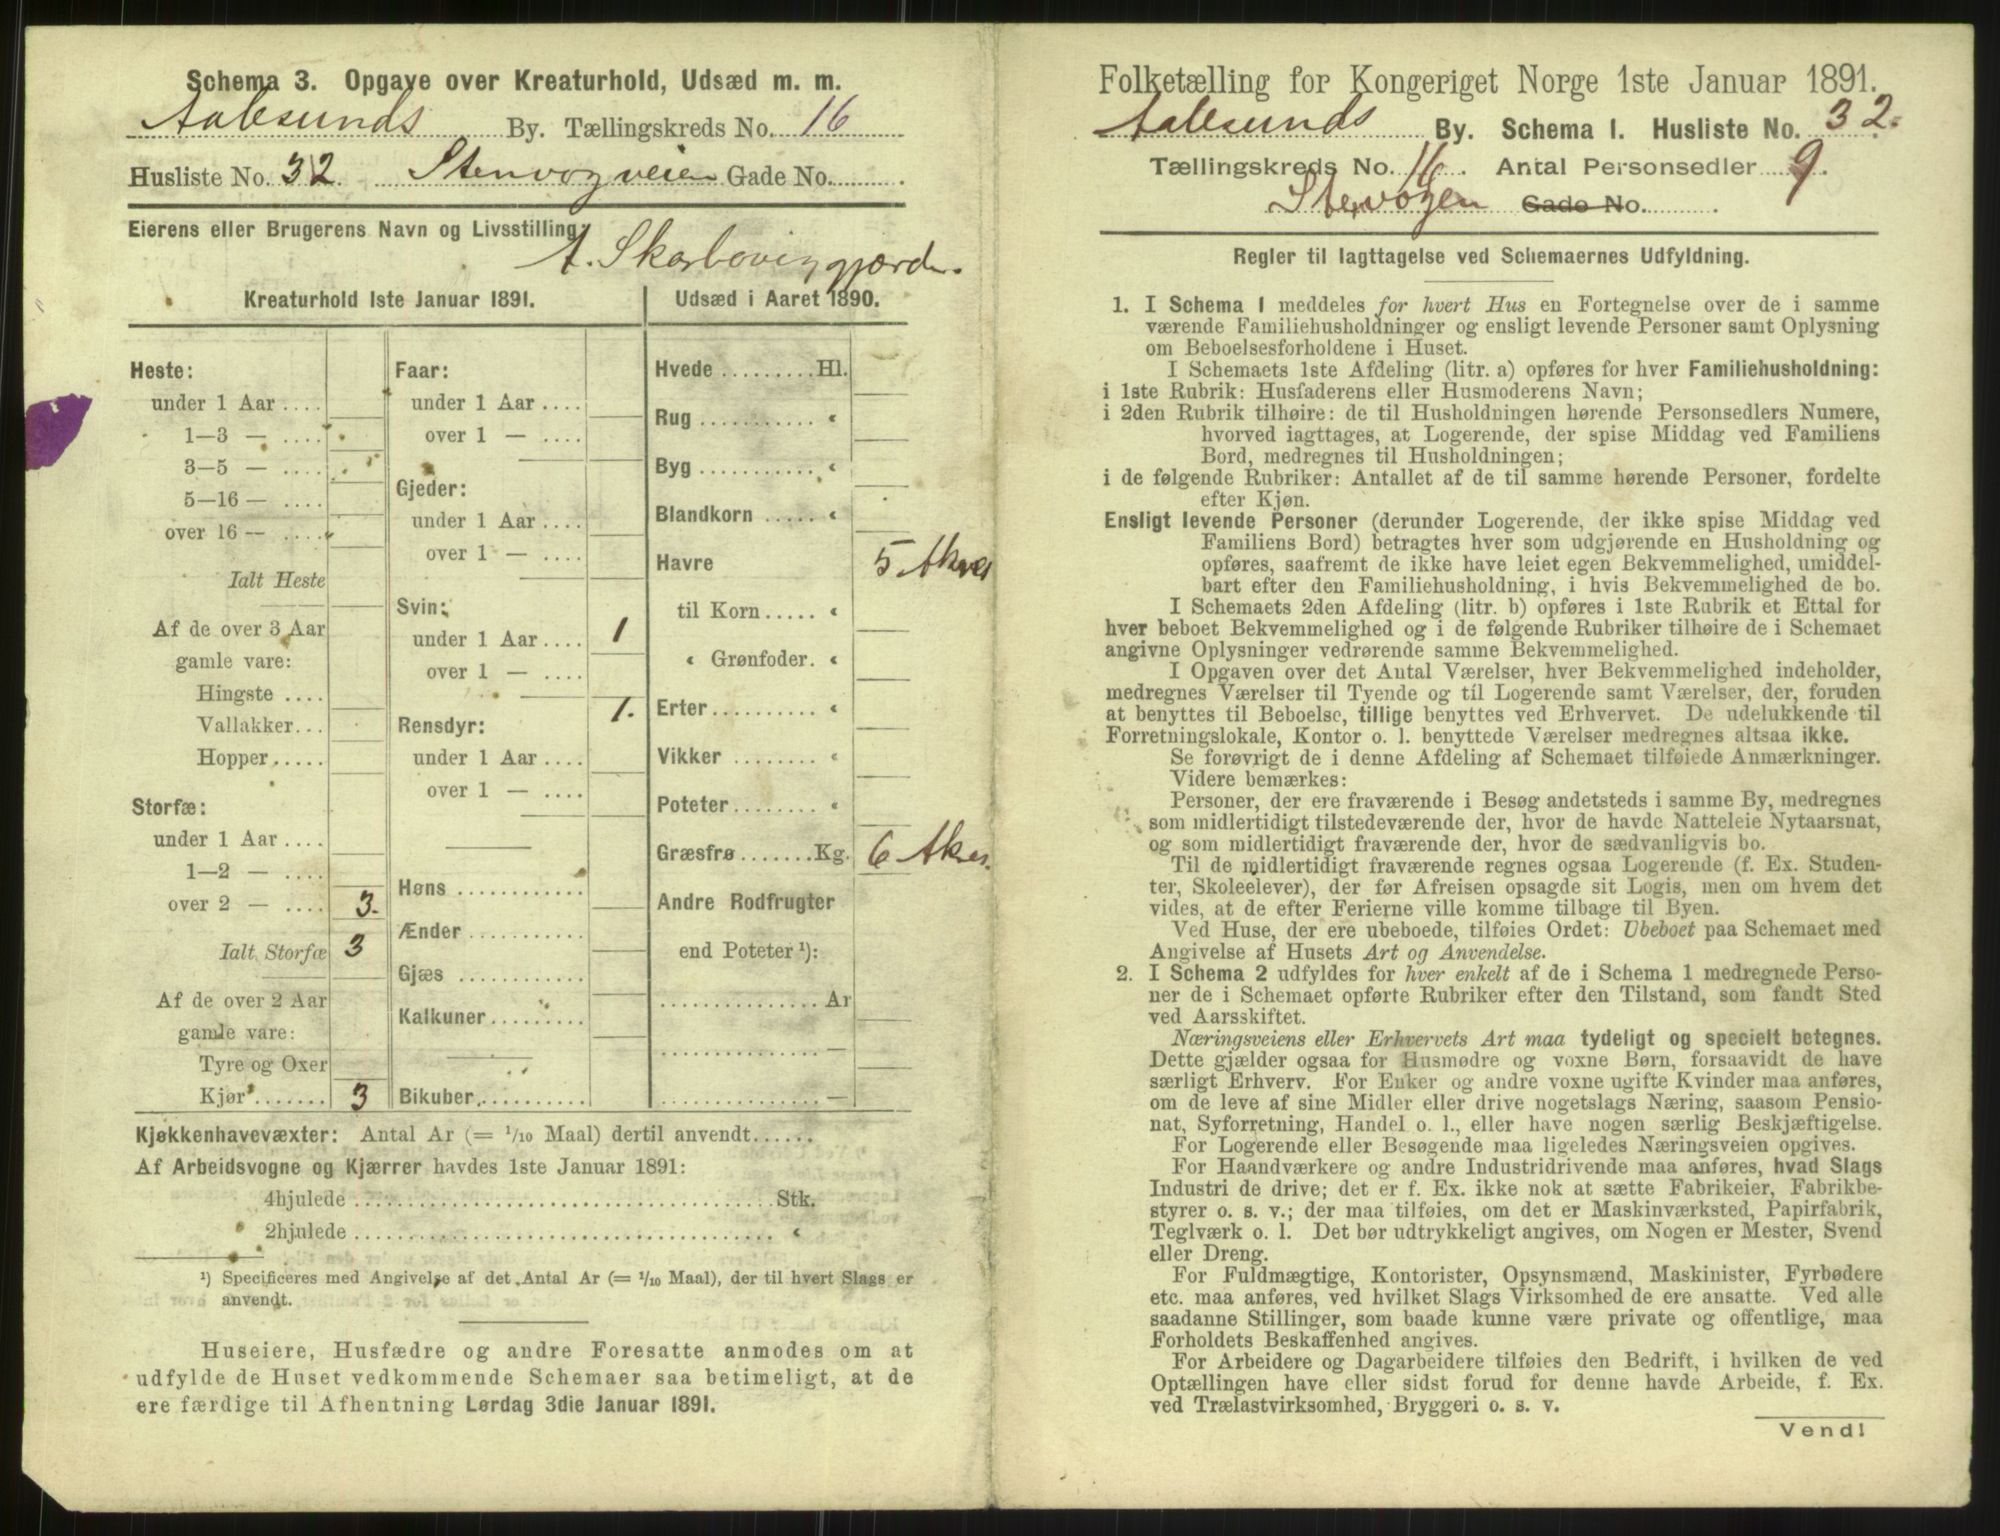 Schema 3. Opgave over Kreaturhold, Udsæd m. m.
Aalesunds By. Tællingskreds No. 16
Husliste No. 32. Stenvogveien Gade No.
Eierens eller Brugerens Navn og Livsstilling:
A. Skarboviggjærde.
Kreaturhold 1ste Januar 1891.
Heste:
under 1 Aar ....
1—3 — ....
3—5 — ....
5—16 — ....
over 16 — ....
Ialt Heste
Af de over 3 Aar
gamle vare:
Hingste ....
Vallakker...
Hopper.....
Storfæ:
under 1 Aar ....
1—2 — ....
over 2 — .... 3.
Ialt Storfæ 3
Af de over 2 Aar
gamle vare:
Tyre og Oxer
Kjør....... 3
Faar:
under 1 Aar ....
over 1 — ....
Gjeder:
under 1 Aar ....
over 1 — ....
Svin:
under 1 Aar .... 1
over 1 — ....
1.
Rensdyr:
under 1 Aar ....
over 1 — ....
Høns ............
Ænder ...........
Gjæs ............
Kalkuner.........
Bikuber..........
Udsæd i Aaret 1890.
Hvede .........Hl.
Rug .......... «
Byg .......... «
Blandkorn ..... «
Havre 5 Akres
til Korn ..... «
« Grønfoder. «
Erter.......... «
Vikker ........ «
Poteter........ «
Græsfrø .......Kg. 6 Akres.
Andre Rodfrugter
end Poteter ¹):
...............Ar
............... —
............... —
Kjøkkenhavevæxter: Antal Ar (= 1/10 Maal) dertil anvendt......
Af Arbeidsvogne og Kjærrer havdes 1ste Januar 1891:
4hjulede ........................................Stk.
2hjulede ........................................ «
¹) Specificeres med Angivelse af det Antal Ar (= 1/10 Maal), der til hvert Slags er
anvendt.
Huseiere, Husfædre og andre Foresatte anmodes om at
udfylde de Huset vedkommende Schemaer saa betimeligt, at de
ere færdige til Afhentning Lørdag 3die Januar 1891.
Folketælling for Kongeriget Norge 1ste Januar 1891.
Aalesunds By. Schema 1. Husliste No. 32.
Tællingskreds No. 16. Antal Personsedler 9.
Stenvogen Gade No.
Regler til Iagttagelse ved Schemaernes Udfyldning.
1. I Schema 1 meddeles for hvert Hus en Fortegnelse over de i samme
værende Familiehusholdninger og ensligt levende Personer samt Oplysning
om Beboelsesforholdene i Huset.
I Schemaets 1ste Afdeling (litr. a) opføres for hver Familiehusholdning:
i 1ste Rubrik: Husfaderens eller Husmoderens Navn;
i 2den Rubrik tilhøire: de til Husholdningen hørende Personsedlers Numere,
hvorved iagttages, at Logerende, der spise Middag ved Familiens
Bord, medregnes til Husholdningen;
i de følgende Rubriker: Antallet af de til samme hørende Personer, fordelte
efter Kjøn.
Ensligt levende Personer (derunder Logerende, der ikke spise Middag ved
Familiens Bord) betragtes hver som udgjørende en Husholdning og
opføres, saafremt de ikke have leiet egen Bekvemmelighed, umiddel-
bart efter den Familiehusholdning, i hvis Bekvemmelighed de bo.
I Schemaets 2den Afdeling (litr. b) opføres i 1ste Rubrik et Ettal for
hver beboet Bekvemmelighed og i de følgende Rubriker tilhøire de i Schemaet
angivne Oplysninger vedrørende samme Bekvemmelighed.
I Opgaven over det Antal Værelser, hver Bekvemmelighed indeholder,
medregnes Værelser til Tyende og til Logerende samt Værelser, der, foruden
at benyttes til Beboelse, tillige benyttes ved Erhvervet. De udelukkende til
Forretningslokale, Kontor o. l. benyttede Værelser medregnes altsaa ikke.
Se forøvrigt de i denne Afdeling af Schemaet tilføiede Anmærkninger.
Videre bemærkes:
Personer, der ere fraværende i Besøg andetsteds i samme By, medregnes
som midlertidigt tilstedeværende der, hvor de havde Natteleie Nytaarsnat,
og som midlertidigt fraværende der, hvor de sædvanligvis bo.
Til de midlertidigt fraværende regnes ogsaa Logerende (f. Ex. Studen-
ter, Skoleelever), der før Afreisen opsagde sit Logis, men om hvem det
vides, at de efter Ferierne ville komme tilbage til Byen.
Ved Huse, der ere ubeboede, tilføies Ordet: Ubeboet paa Schemaet med
Angivelse af Husets Art og Anvendelse.
2. I Schema 2 udfyldes for hver enkelt af de i Schema 1 medregnede Perso-
ner de i Schemaet opførte Rubriker efter den Tilstand, som fandt Sted
ved Aarsskiftet.
Næringsveiens eller Erhvervets Art maa tydeligt og specielt betegnes.
Dette gjælder ogsaa for Husmødre og voxne Børn, forsaavidt de have
særligt Erhverv. For Enker og andre voxne ugifte Kvinder maa anføres,
om de leve af sine Midler eller drive nogetslags Næring, saasom Pensio-
nat, Syforretning, Handel o. l., eller have nogen særlig Beskjæftigelse.
For Logerende eller Besøgende maa ligeledes Næringsveien opgives.
For Haandværkere og andre Industridrivende maa anføres, hvad Slags
Industri de drive; det er f. Ex. ikke nok at sætte Fabrikeier, Fabrikbe-
styrer o. s. v.; der maa tilføies, om det er Maskinværksted, Papirfabrik,
Teglværk o. l. Det bør udtrykkeligt angives, om Nogen er Mester, Svend
eller Dreng.
For Fuldmægtige, Kontorister, Opsynsmænd, Maskinister, Fyrbødere
etc. maa anføres, ved hvilket Slags Virksomhed de ere ansatte. Ved alle
saadanne Stillinger, som baade kunne være private og offentlige, maa
Forholdets Beskaffenhed angives.
For Arbeidere og Dagarbeidere tilføies den Bedrift, i hvilken de ved
Optællingen have eller sidst forud for denne havde Arbeide, f. Ex.
ved Trælastvirksomhed, Bryggeri o. s. v.
Vend!